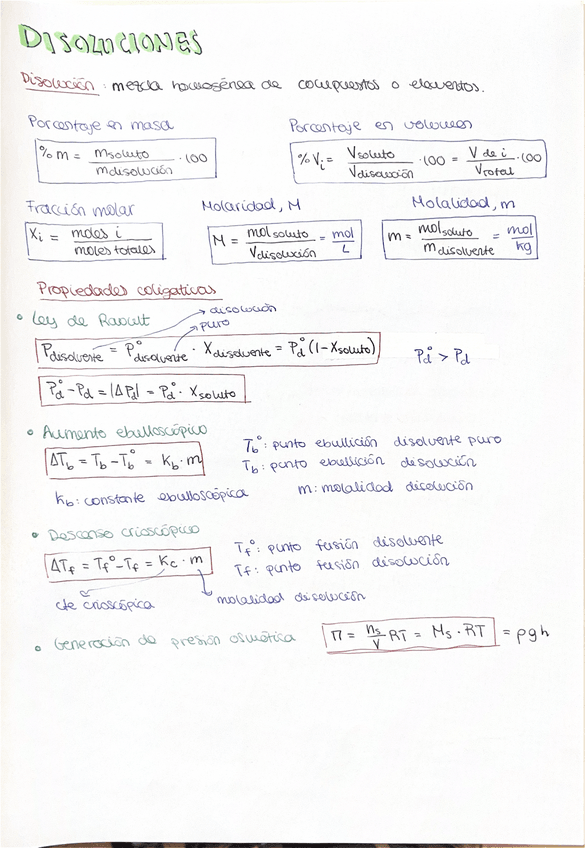 DISOLUCIONES
Disolución: mezcla homogénea de compuestos o elementos.
Porcentaje en masa
% m = m soluto / m disolución · 100
Porcentaje en volumen
% Vi = V soluto / V disolución · 100 = V de i / V total · 100
Fracción molar
Xi = moles i / moles totales
Molaridad, M
M = mol soluto / V disolución = mol / L
Molalidad, m
m = mol soluto / m disolvente = mol / kg
Propiedades coligativas
• Ley de Raoult
→ disolución
→ puro
P disolvente = P° disolvente · X disolvente = P°d (1 - X soluto)
P°d > Pd
P°d - Pd = |ΔPd| = P°d · X soluto
• Aumento ebulloscópico
ΔTb = Tb - Tb° = Kb · m
Tb°: punto ebullición disolvente puro
Tb: punto ebullición disolución
Kb: constante ebulloscópica
m: molalidad disolución
• Descenso crioscópico
ΔTf = Tf° - Tf = Kc · m
Tf°: punto fusión disolvente
Tf: punto fusión disolución
cte crioscópica
molalidad disolución
• Generación de presión osmótica
π = ns / V RT = Ms · RT = ρgh